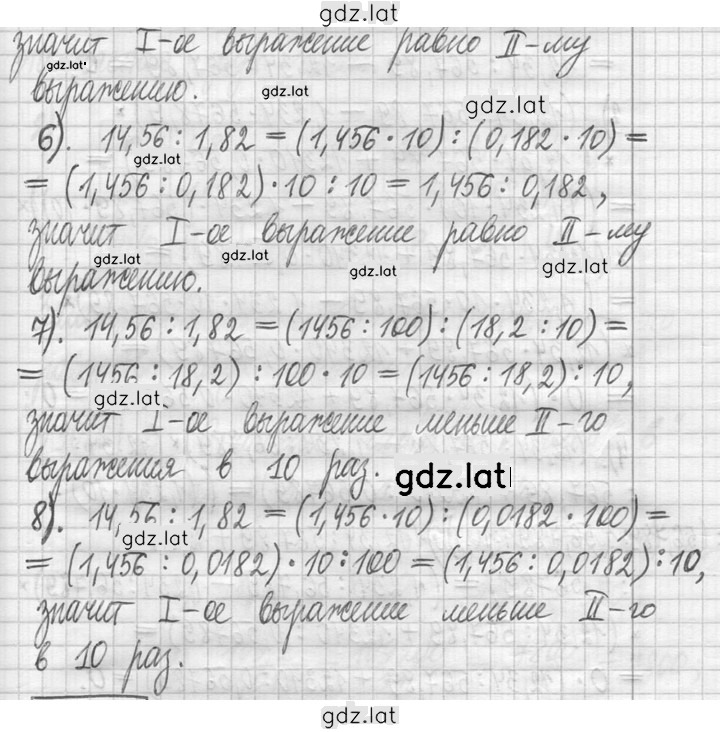 gdz.lat
значит I-ое выражение равно II-му
gdz.lat
выражению.
gdz.lat
gdz.lat
6). 14,56 : 1,82 = (1,456 · 10) : (0,182 · 10) =
gdz.lat
= (1,456 : 0,182) · 10 : 10 = 1,456 : 0,182,
значит I-ое выражение равно II-му
gdz.lat
gdz.lat
gdz.lat
gdz.lat
выражению.
7). 14,56 : 1,82 = (1456 : 100) : (18,2 : 10) =
= (1456 : 18,2) : 100 · 10 = (1456 : 18,2) : 10,
gdz.lat
значит I-ое выражение меньше II-го
выражения в 10 раз.
gdz.lat
8). 14,56 : 1,82 = (1,456 · 10) : (0,0182 · 100) =
gdz.lat
= (1,456 : 0,0182) · 10 : 100 = (1,456 : 0,0182) : 10,
значит I-ое выражение меньше II-го
в 10 раз.
gdz.lat